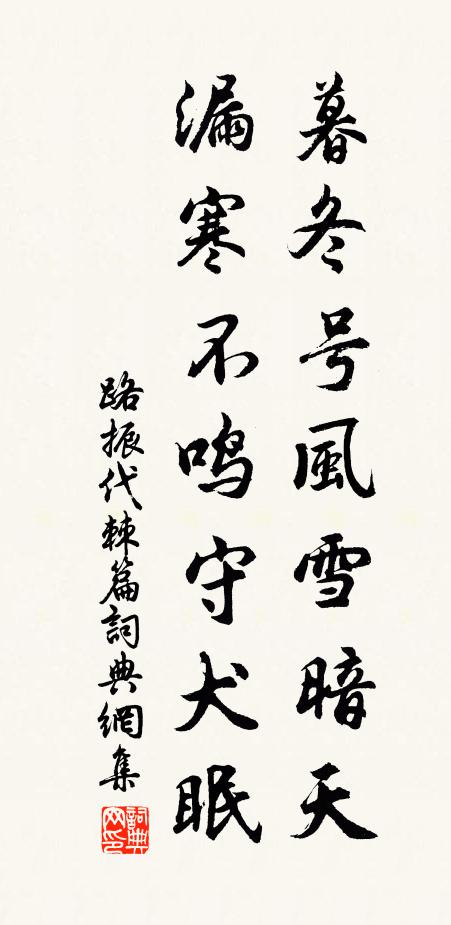 暮冬号風雪暗天
漏寒不鸣守犬眠
路振代棘篇詞典網集
詞典网印